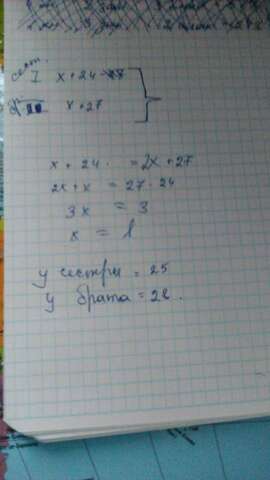 сест. I x + 24
II x + 27
x + 24 = 2x + 27
2x + x = 27 - 24
3x = 3
x = 1
у сестры = 25
у брата = 28.